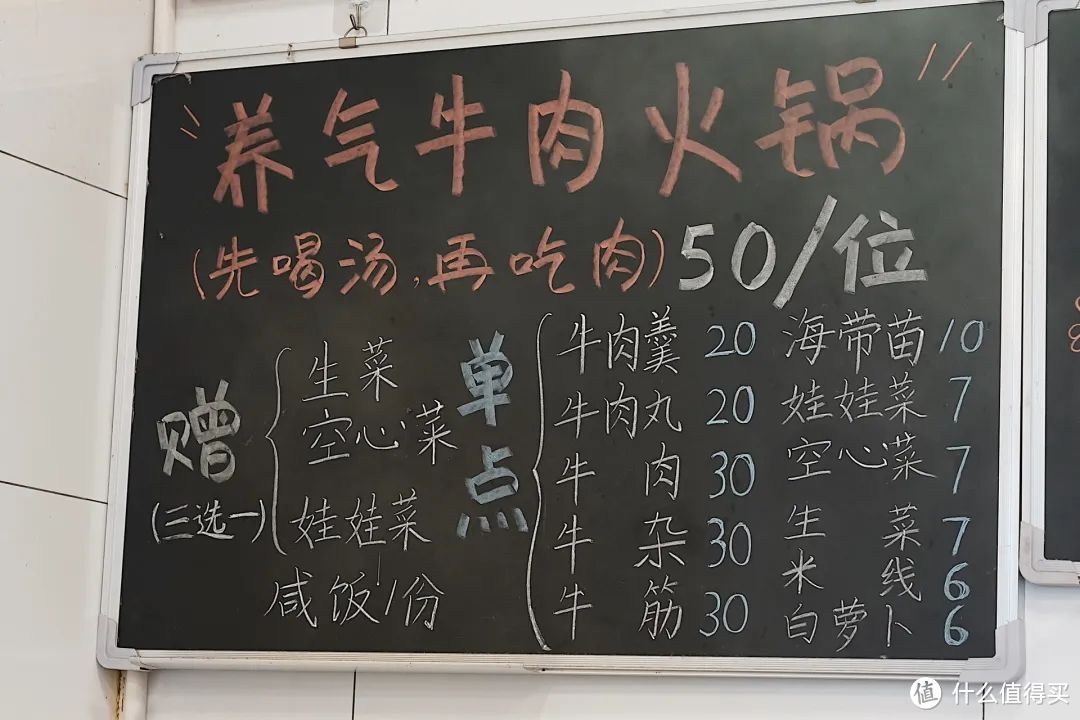 "养气牛肉火锅"
(先喝汤,再吃肉)50/位
赠
(三选一)
生菜
空心菜
娃娃菜
咸饭1份
单点
牛肉羹 20 海带苗 10
牛肉丸 20 娃娃菜 7
牛肉 30 空心菜 7
牛杂 30 生菜 7
牛筋 30 米线 6
白萝卜 6
值 什么值得买